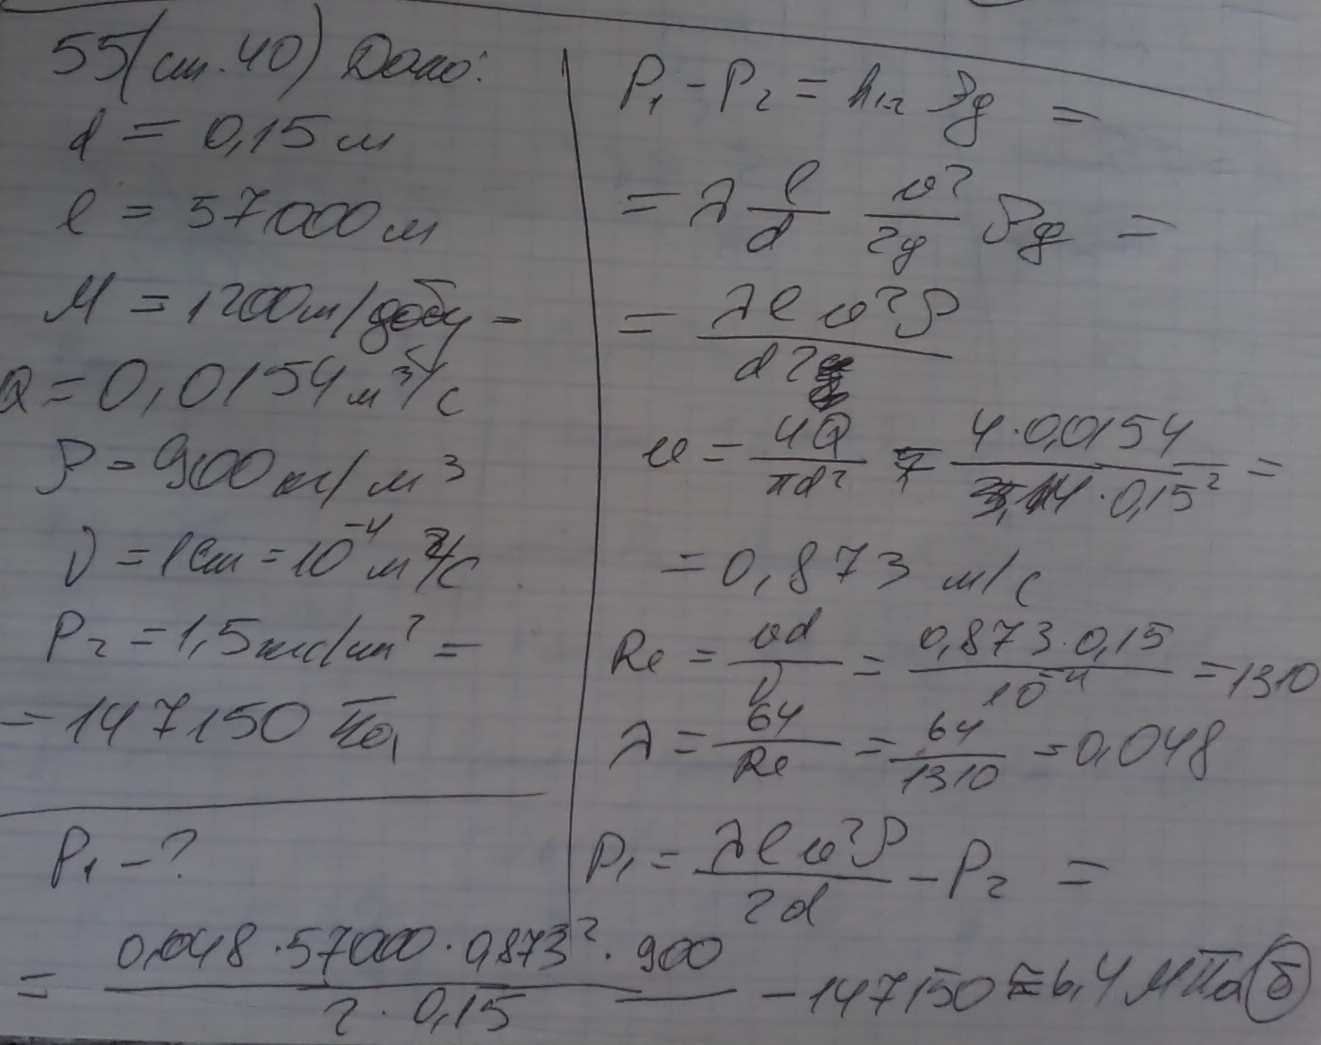 55(ст.40) Дано:
d = 0,15 м
l = 57000 м
M = 1200т/добу -
Q = 0,0154 м³/с
ρ = 900 кг/м³
ν = 1 Ст = 10⁻⁴ м²/с
P₂ = 1,5 кгс/см² =
= 147150 Па
P₁ - ?
P₁ - P₂ = h₁₋₂ ρg =
= λ l/d υ²/2g ρg =
= λlυ²ρ/d2
υ = 4Q/πd² = 4·0,0154/3,14·0,15² =
= 0,873 м/с
Re = υd/ν = 0,873·0,15/10⁻⁴ = 1310
λ = 64/Re = 64/1310 = 0,048
P₁ = λlυ²ρ/2d - P₂ =
= 0,048·57000·0,873²·900/2·0,15 - 147150 ≈ 6,4 МПа б